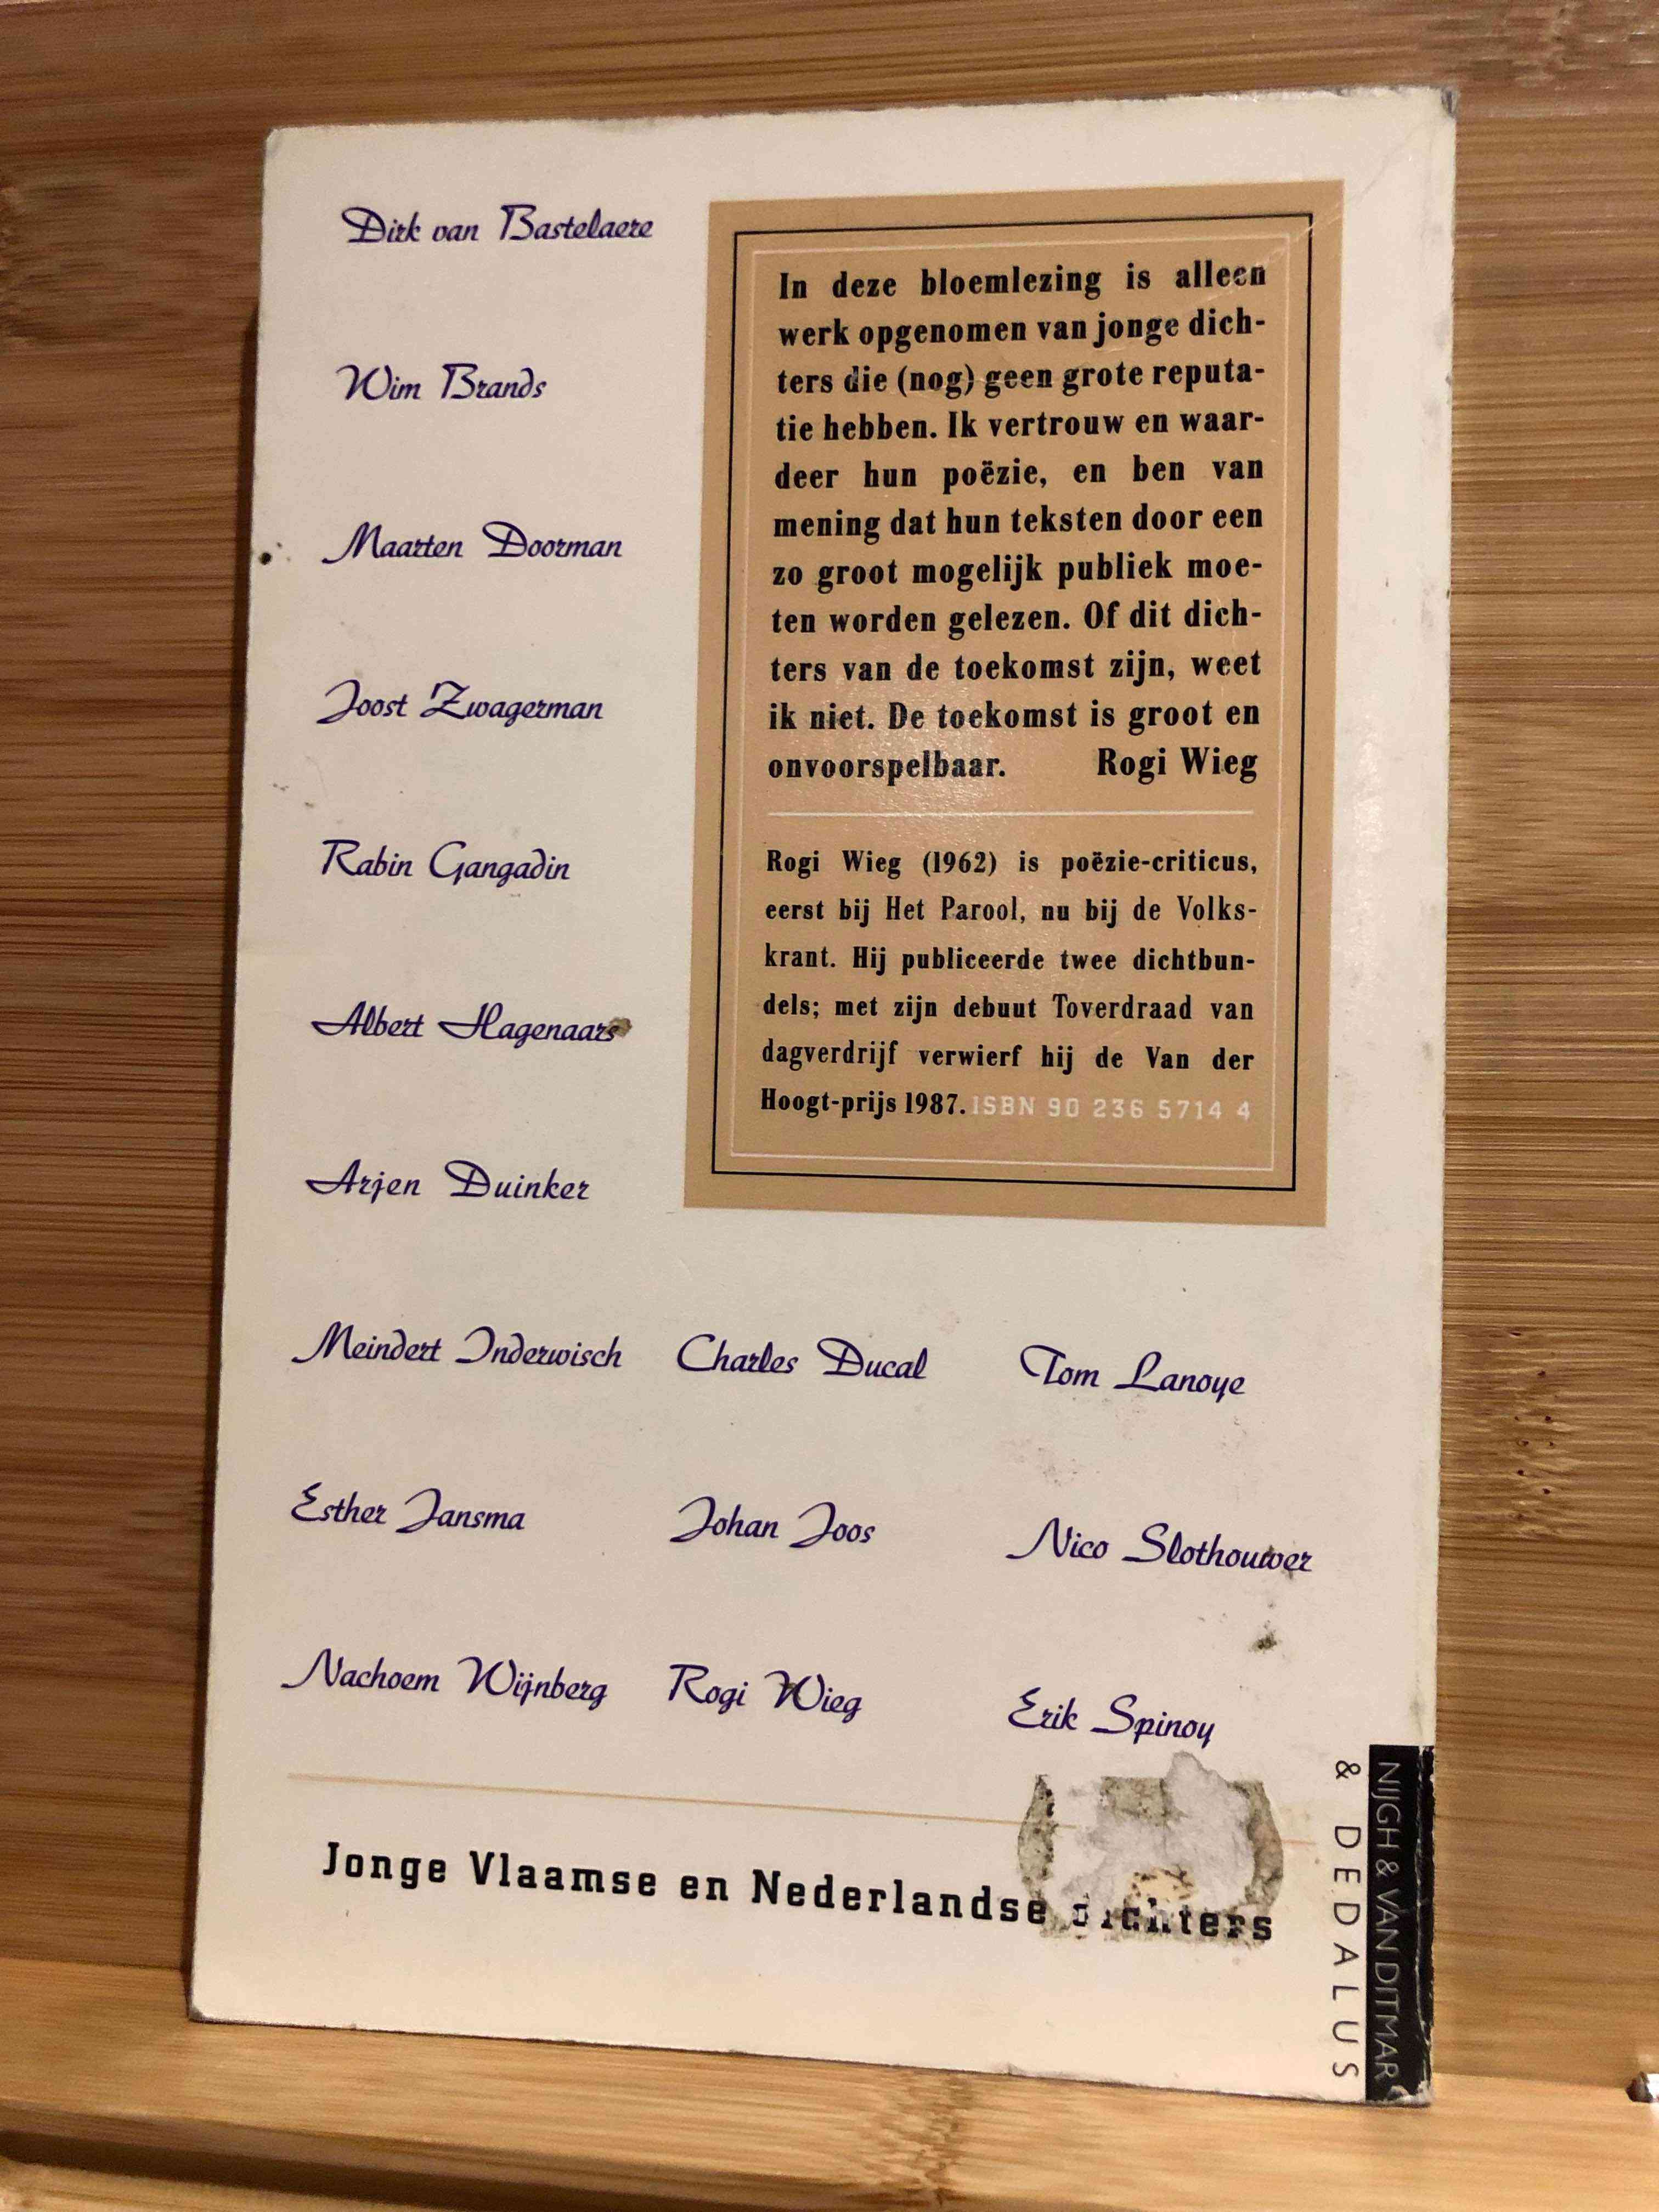 Dirk van Bastelaere
Wim Brands
Maarten Doorman
Joost Zwagerman
Rabin Gangadin
Albert Hagenaars
Arjen Duinker
In deze bloemlezing is alleen
werk opgenomen van jonge dich-
ters die (nog) geen grote reputa-
tie hebben. Ik vertrouw en waar-
deer hun poëzie, en ben van
mening dat hun teksten door een
zo groot mogelijk publiek moe-
ten worden gelezen. Of dit dich-
ters van de toekomst zijn, weet
ik niet. De toekomst is groot en
onvoorspelbaar. Rogi Wieg
Rogi Wieg (1962) is poëzie-criticus,
eerst bij Het Parool, nu bij de Volks-
krant. Hij publiceerde twee dichtbun-
dels; met zijn debuut Toverdraad van
dagverdrijf verwierf hij de Van der
Hoogt-prijs 1987. ISBN 90 236 5714 4
Meindert Inderwisch Charles Ducal Tom Lanoye
Esther Jansma Johan Joos Nico Slothouwer
Nachoem Wijnberg Rogi Wieg Erik Spinoy
Jonge Vlaamse en Nederlandse dichters
NIJGH & VAN DITMAR
& DEDALUS